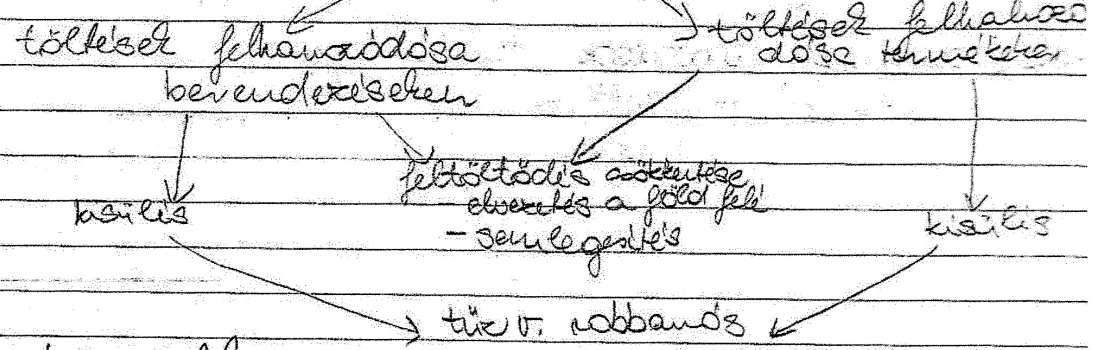 töltések felhalmozódása
berendezéseken
töltések felhalmozó
dása termékeken
feltöltődés csökkentése
elvezetés a föld felé
- semlegesítés
kisülés
kisülés
tűz v. robbanás